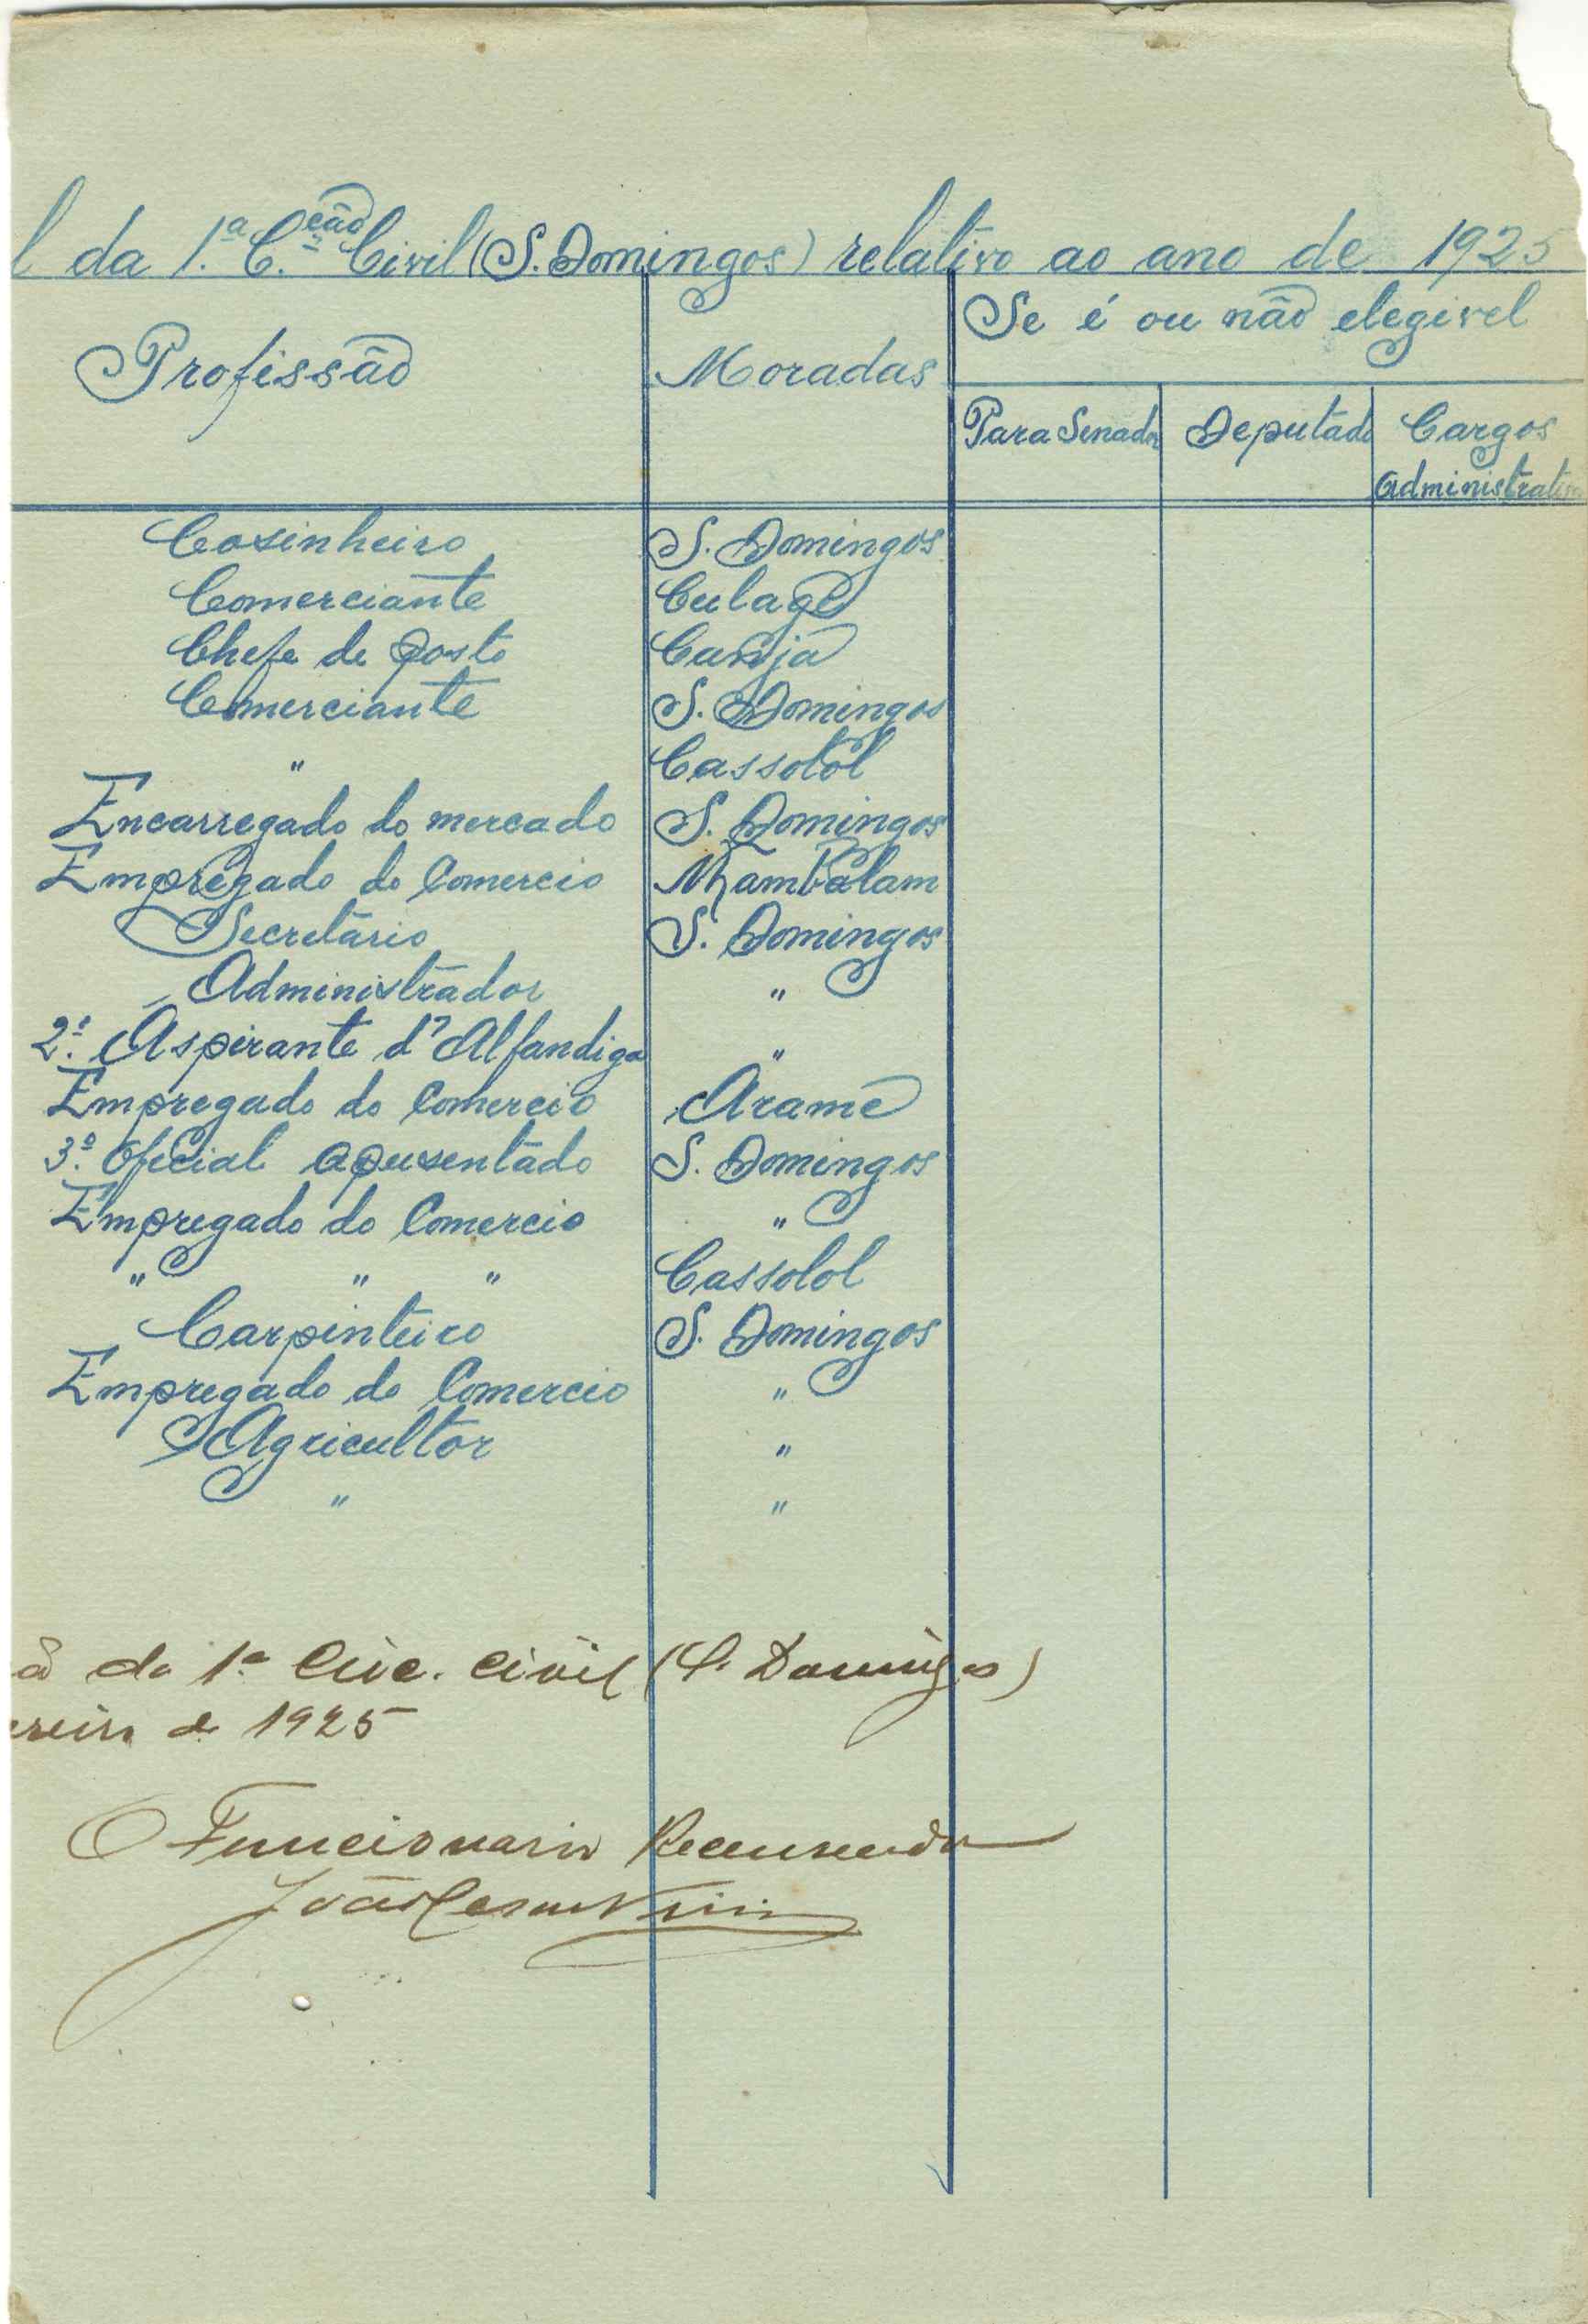 l da 1.ª C.ção Civil (S. Domingos) relativo ao ano de 1925
Profissão Moradas Se é ou não elegivel
Para Senador Deputado Cargos Administrativos
Cosinheiro S. Domingos
Comerciante Culagé
Chefe de posto Canjá
Comerciante S. Domingos
" Cassolol
Encarregado do mercado S. Domingos
Empregado do Comercio Nhambalam
Secretário S. Domingos
Administrador "
2.º Aspirante d'Alfandiga "
Empregado do Comercio Aramé
3.º Oficial apusentado S. Domingos
Empregado do Comercio "
" " " Cassolol
Carpinteiro S. Domingos
Empregado do Comercio "
Agricultor "
" "
da 1ª Circ. Civil (S. Domingos)
ereiro de 1925
O Funcionario Recenseador
João